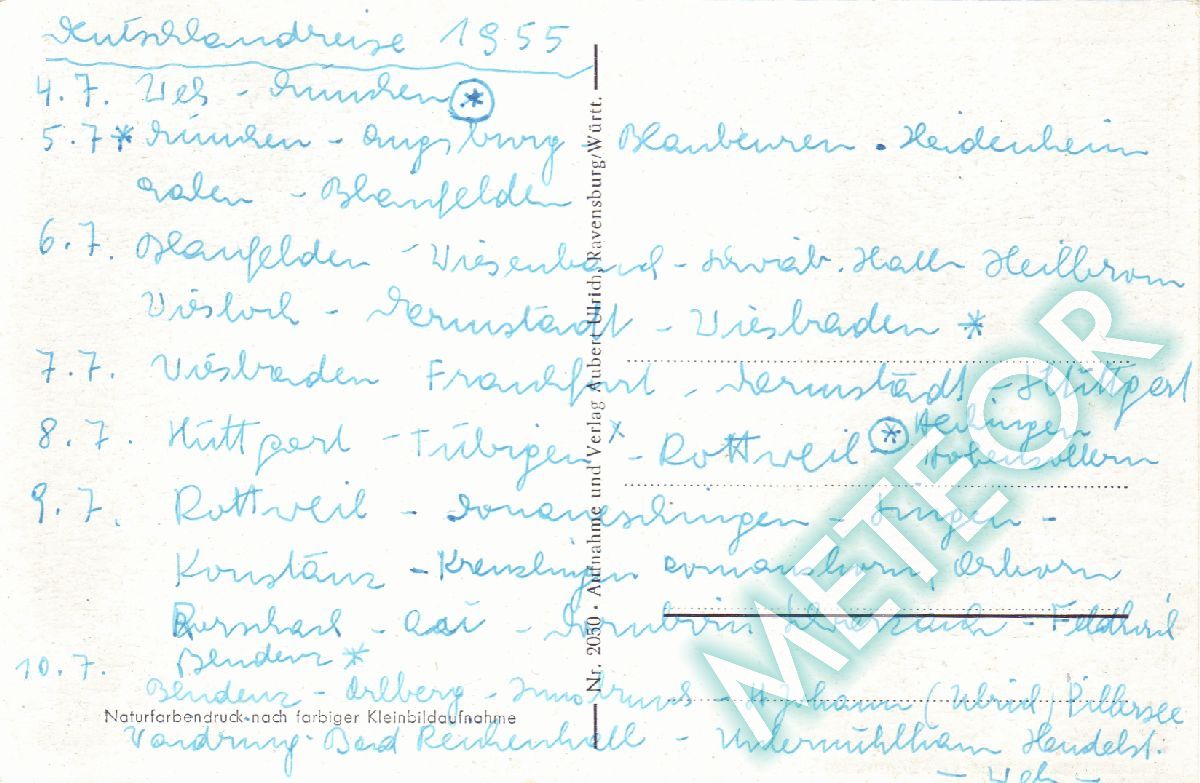 Deutschlandreise 1955
4.7. Wels - München *
5.7 * München - Augsburg Blaubeuren . Heidenheim
Aalen - Blaufelden
6.7. Blaufelden - Wiesenbach - Schwäb. Hall Heilbronn
Wiesloch - Darmstadt - Wiesbaden *
7.7. Wiesbaden Frankfurt - Darmstadt - Stuttgart
8.7. Stuttgart - Tübigen x - Rottweil * Hechingen
Hohenzollern
9.7. Rottweil - Donaueschingen - Singen -
Konstanz - Kreuzlingen Romanshorn, Arborn
Rorschach - - Dornbirn - Feldkirch
Bludenz *
10.7. Bludenz - Arlberg - Innsbruck - St Johann (Ulrich) Pillersee
Bad Reichenhall - Untermühlham
- Wels -
Nr. 2050 · Aufnahme und Verlag Aubert Ulrich, Ravensburg/Württ.
Naturfarbendruck nach farbiger Kleinbildaufnahme
METEOR